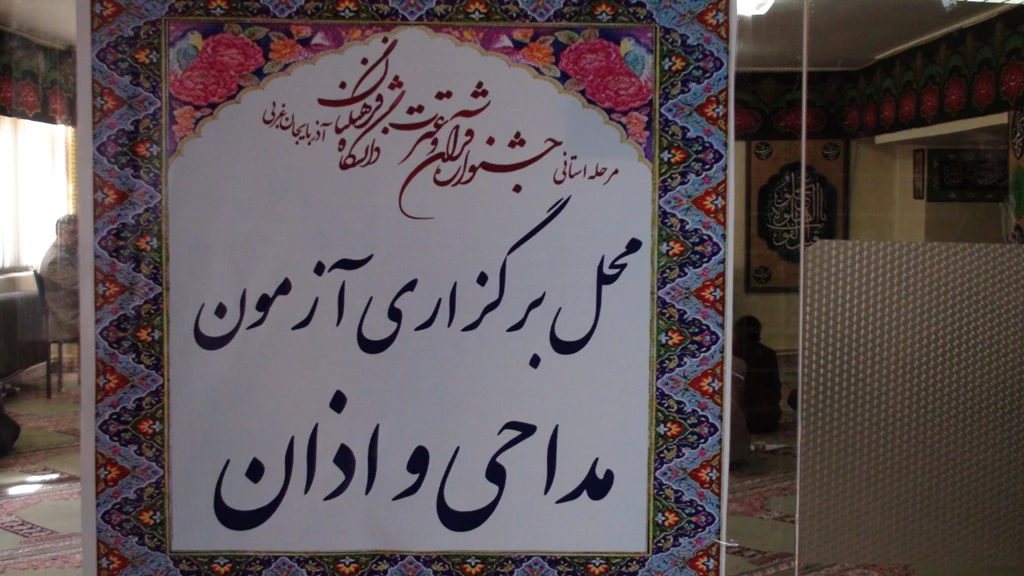 مرحله استانی جشنواره قرآن و عترت دانشگاه فرهنگیان آذربایجان غربی
محل برگزاری آزمون
مداحی و اذان